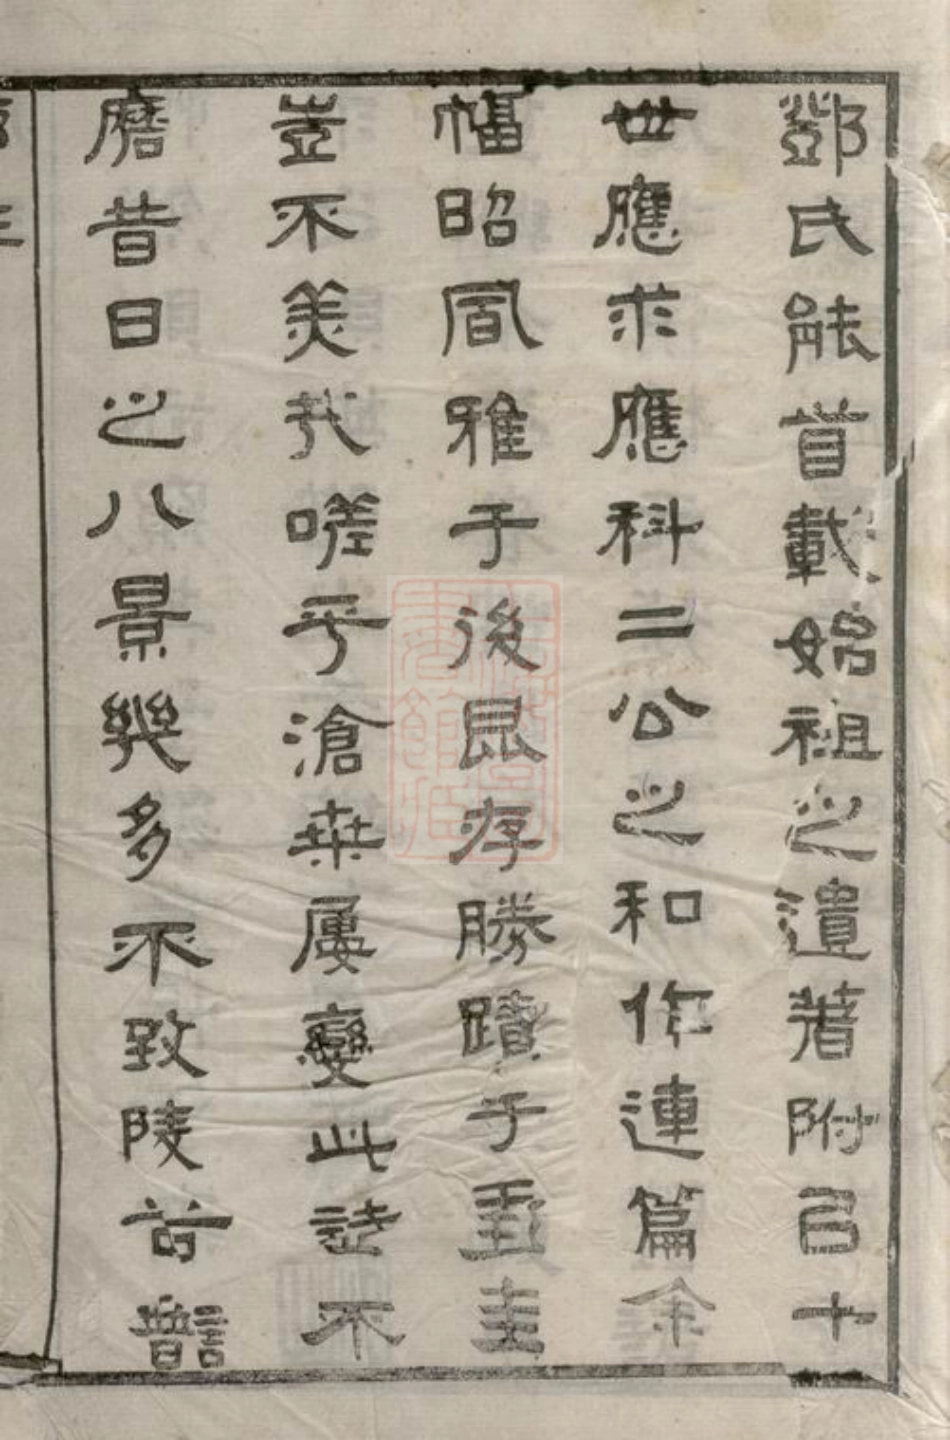 鄧氏能首載始祖之遺著附㠯十
世應求應科二公之和作連篇
幅昭風雅于後昆存勝蹟于
豈不美哉嗟乎滄桑屢變此誌不
磨昔日之八景幾多不致陵